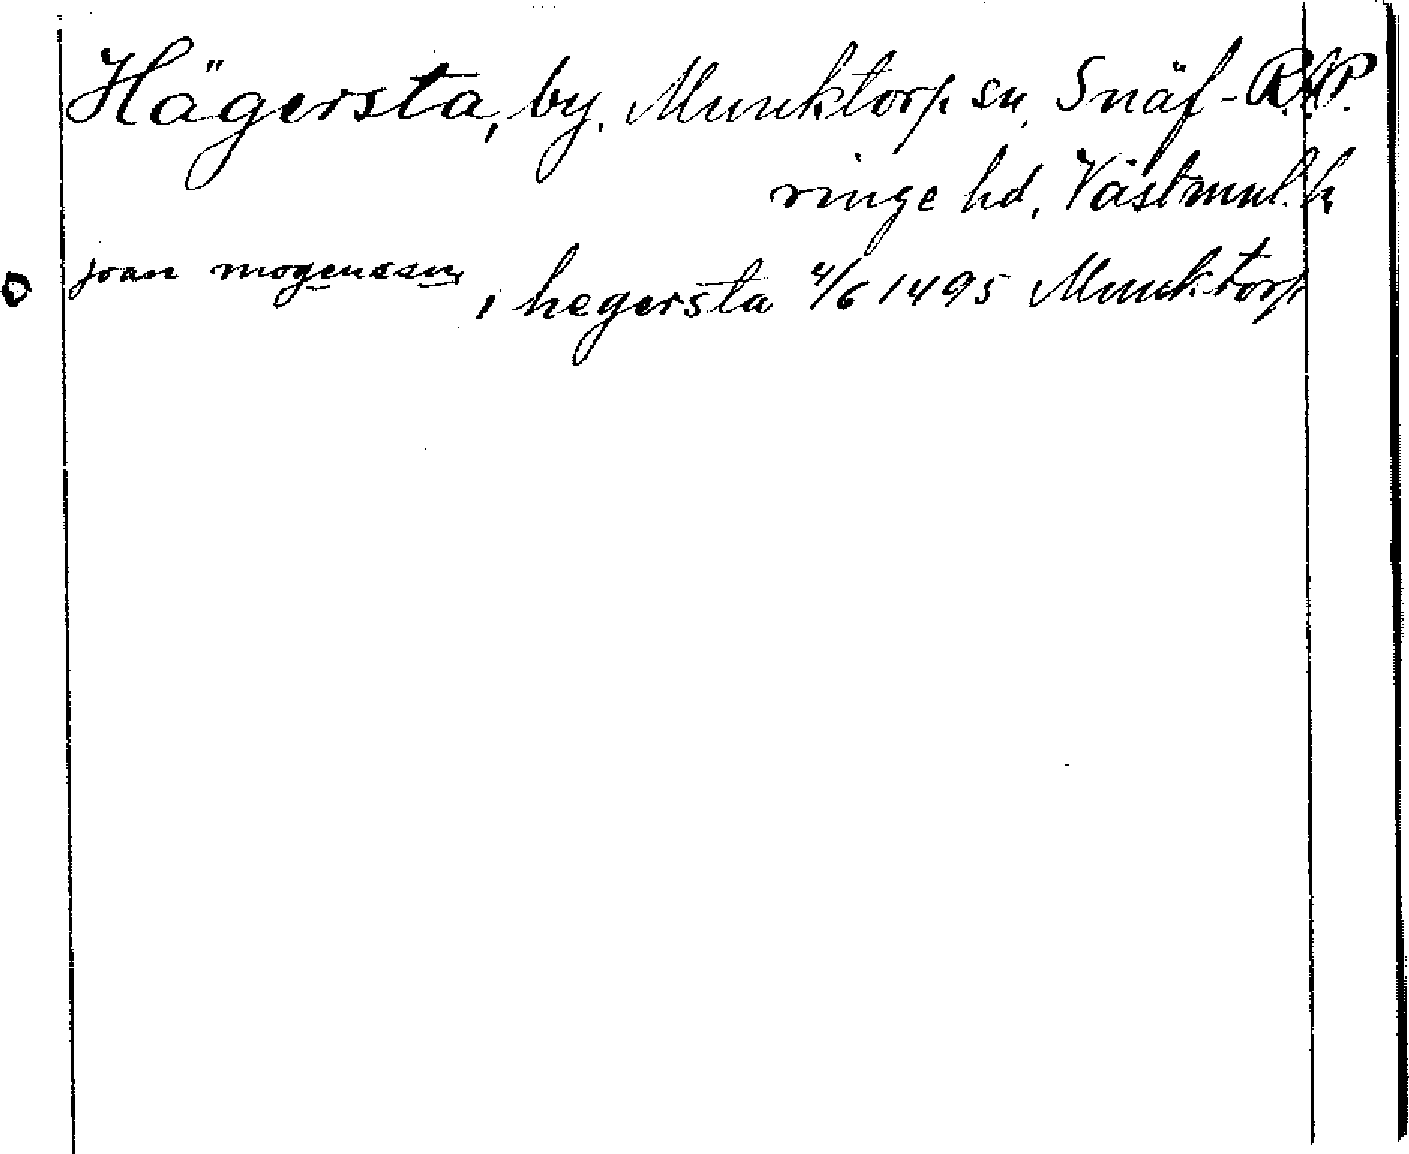 Hägersta, by, Munktorp sn, Snäf- R.A.P.
ringe hd, Västmnl. h
joan mogensson, i hegersta 4/6 1495 Munktorp